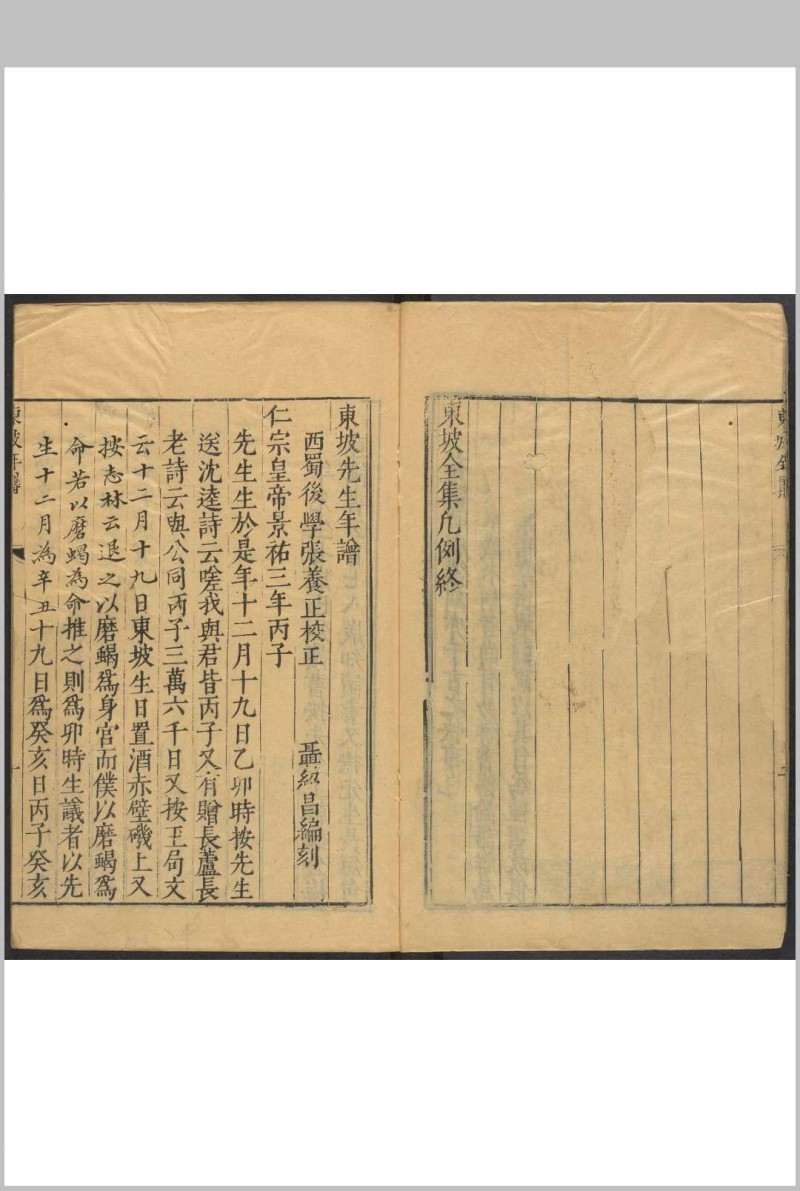 東坡全集
東坡全集凡例終
東坡先生年譜
西蜀後學張養正校正 聶紹昌編刻
仁宗皇帝景祐三年丙子
先生生於是年十二月十九日乙卯時按先生
送沈逵詩云嗟我與君皆丙子又有贈長蘆長
老詩云與公同丙子三萬六千日又按王局文
云十二月十九日東坡生日置酒赤壁磯上又
按志林云退之以磨蝎爲身宮而僕以磨蝎爲
命若以磨蝎為命推之則爲卯時生議者以先
生十二月為辛丑十九日爲癸亥日丙子癸亥
東坡年譜
一